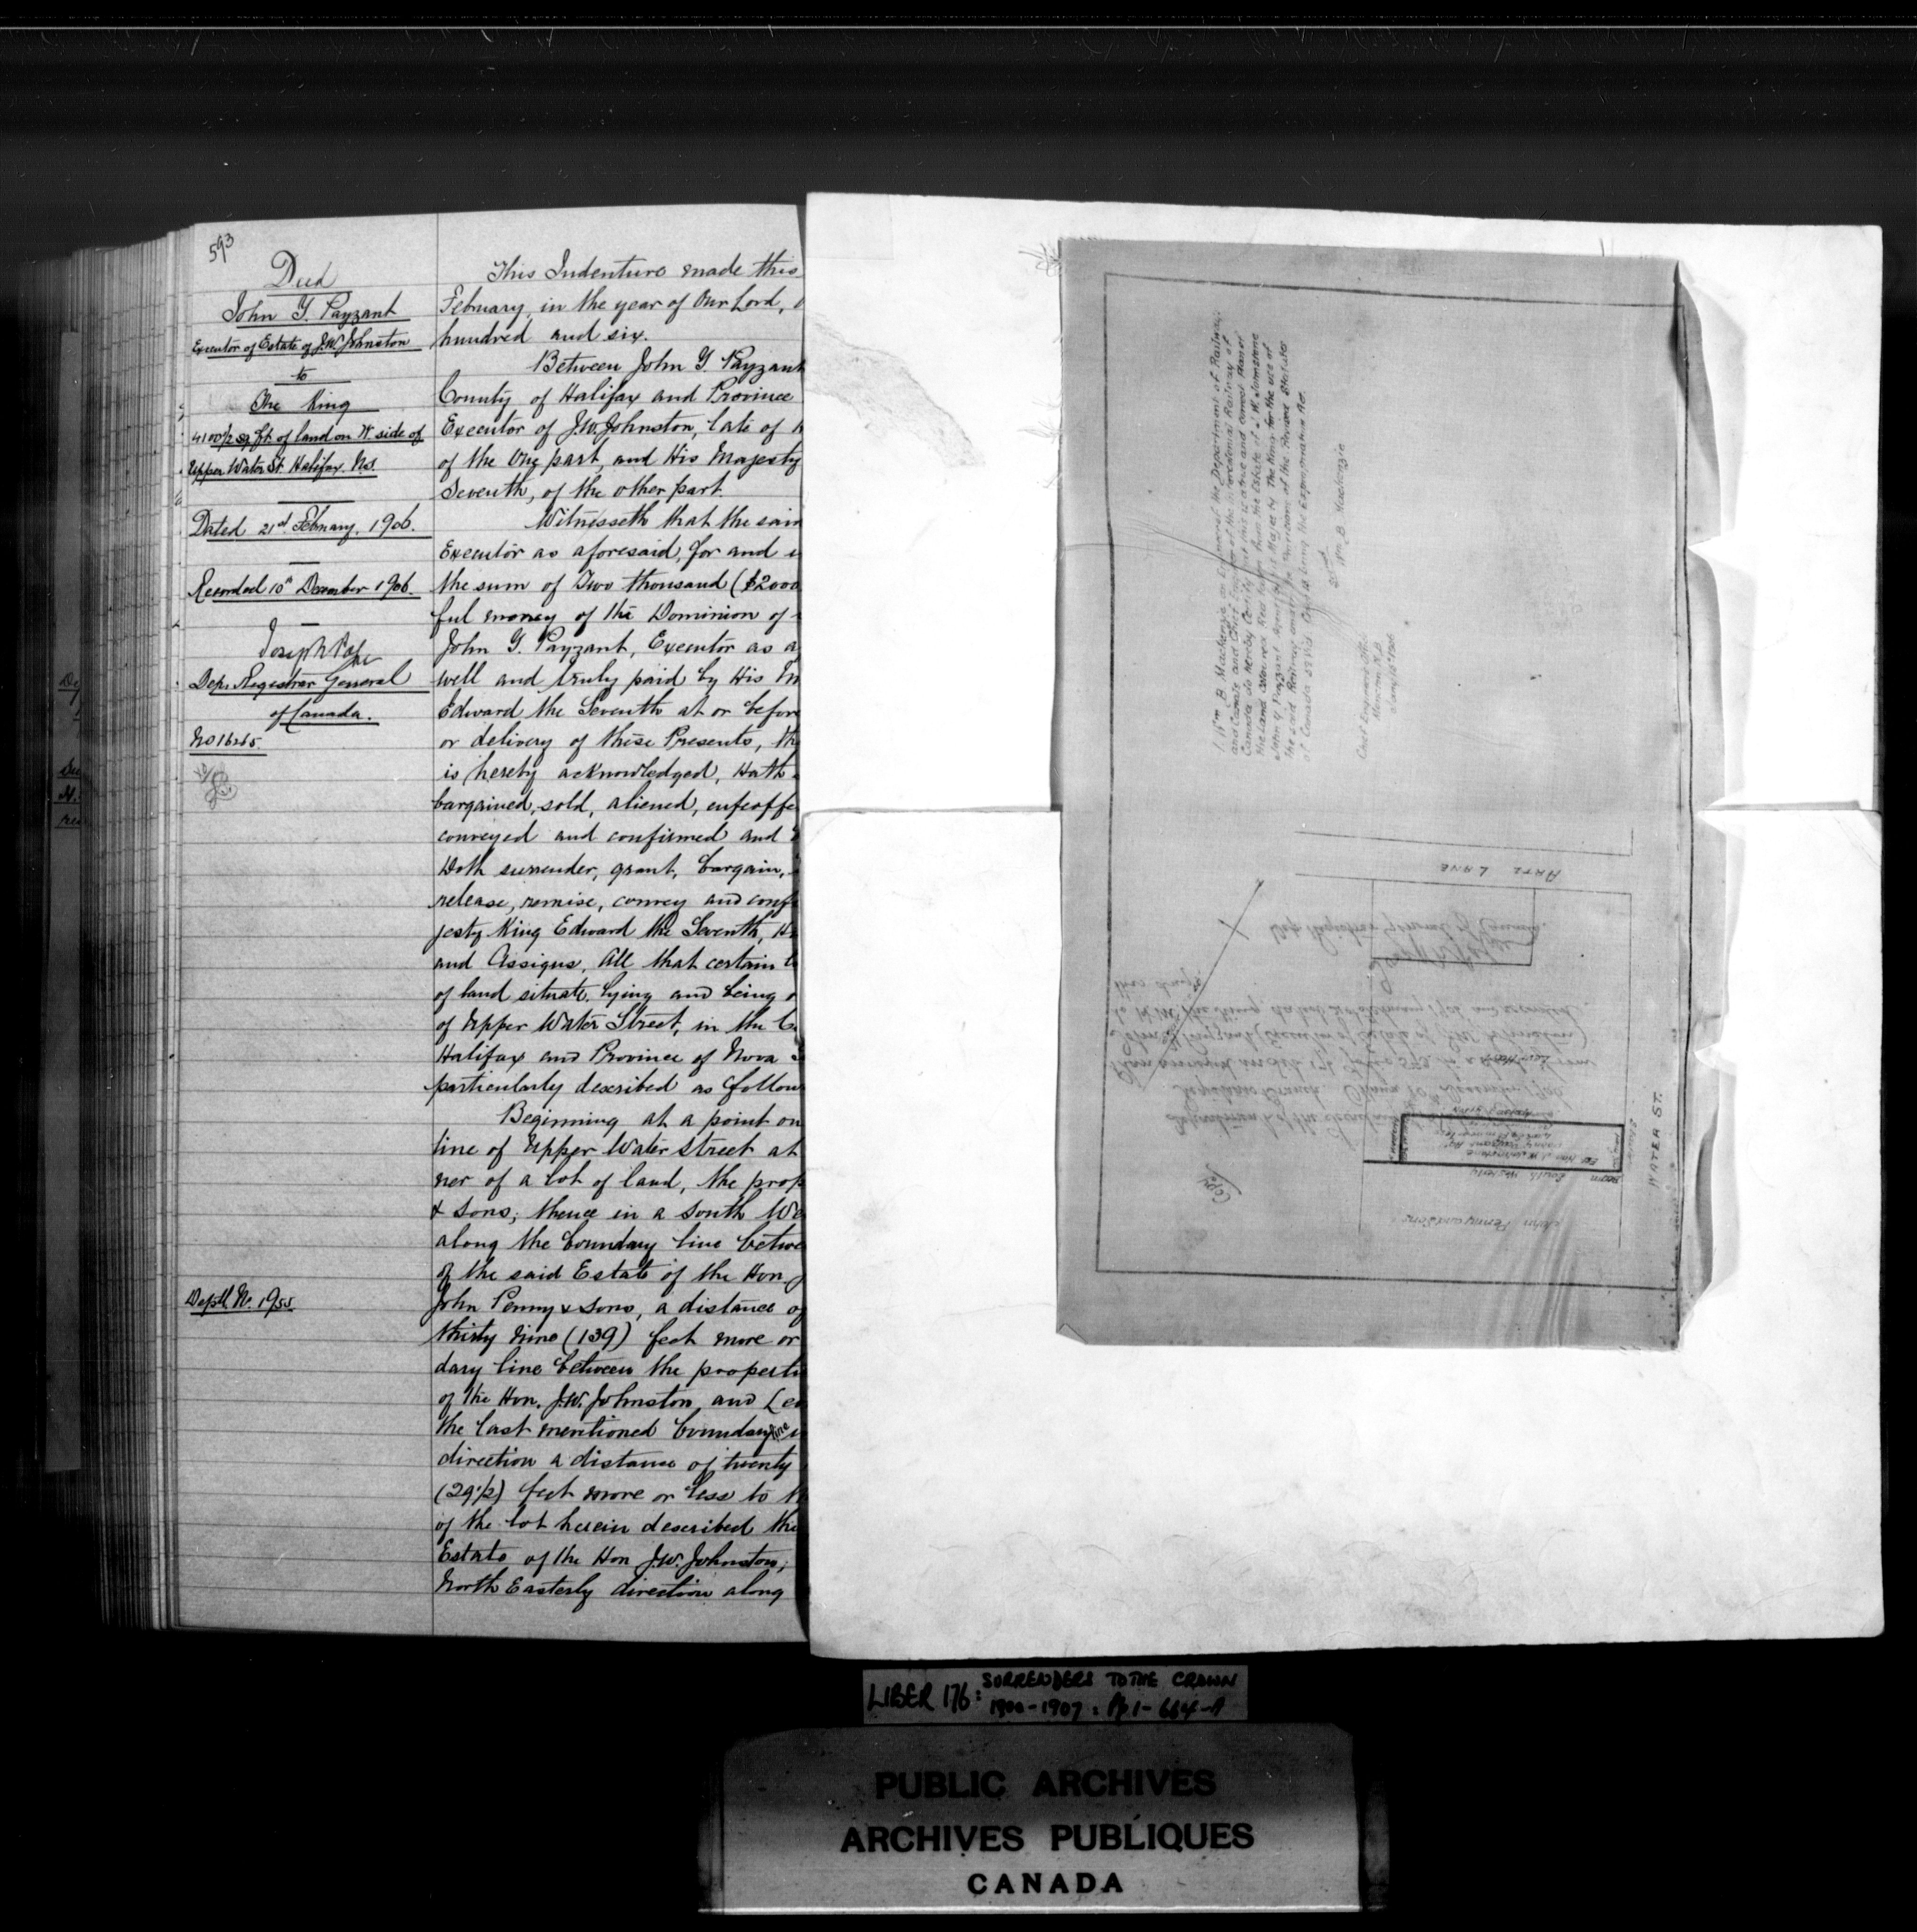 593
Deed
John Y. Payzant
Executor of Estate of J.W. Johnston
to
The King
4100½ sq ft of land on W. side of
Upper Water St. Halifax. N.S.
Dated 21st February. 1906.
Recorded 10th December 1906.
Joseph Pope
Dep. Registrar General
of Canada.
No 16265
Deptl. No. 1955
This Indenture made this
February, in the year of Our Lord,
hundred and six.
Between John Y. Payzant
County of Halifax and Province
Executor of J.W. Johnston, late of
of the One part, and His Majesty
Seventh, of the other part.
Witnesseth that the said
Executor as aforesaid, for and
the sum of Two thousand ($2000
ful money of the Dominion of
John Y. Payzant, Executor as a
well and truly paid by His
Edward the Seventh at or before
or delivery of these Presents, the
is hereby acknowledged, Hath
bargained, sold, aliened, enfeoffe
conveyed and confirmed and
Doth surrender, grant, bargain,
release, remise, convey and conf
jesty King Edward the Seventh, H
and Assigns, All that certain
of land situate, lying and being
of Upper Water Street, in the
Halifax and Province of Nova
particularly described as follow
Beginning at a point on
line of Upper Water Street at
ner of a lot of land, the prop
& Sons; thence in a South We
along the boundary line betwe
of the said Estate of the Hon. J
John Penny & Sons, a distance of
thirty nine (139) feet more or
dary line between the properti
of the Hon. J.W. Johnston, and
the last mentioned boundary line
direction a distance of twenty
(29½) feet more or less to
of the lot herein described the
Estate of the Hon J.W. Johnston;
North Easterly direction along
I Wm B. Mackenzie an Engineer of the Department of Railways
and Canals and Chief Engineer of the Intercolonial Railway of
Canada do hereby Certify that this is a true and correct plan of
the Land coloured Red taken from the Estate of J.W. Johnstone
John Y. Payzant Agent by His Majesty The King for the use of
the said Railway under the Provisions of the Revised Statutes
of Canada
being the Expropriation Act
Wm. B. Mackenzie
Chief Engineers Office
Moncton N.B.
ARTZ LANE
Joseph Pope
Dep Registrar General of Canada.
WATER ST.
South Westerly
John Penny and Sons
Copy
LIBER 176: SURRENDERS TO THE CROWN
1900-1907: Pp. 1-664-A
PUBLIC ARCHIVES
ARCHIVES PUBLIQUES
CANADA